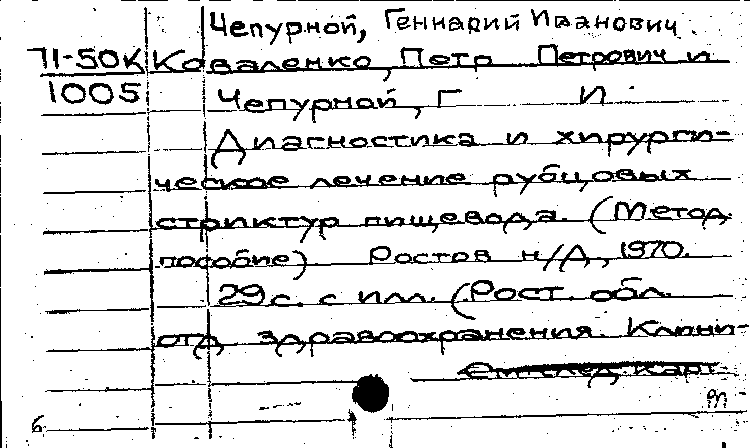 Чепурной, Геннадий Иванович
71-50К Коваленко, Петр Петрович и
1005 Чепурной, Г И.
Диагностика и хирурги-
ческое лечение рубцовых
стриктур пищевода. (Метод
пособие) Ростов н/Д, 1970.
29 с. с илл. (Рост. обл.
отд здравоохранения. Клини-
См. след. карт.
m
б